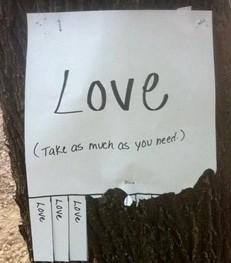 Love
(Take as much as you need.)
Love
Love
Love